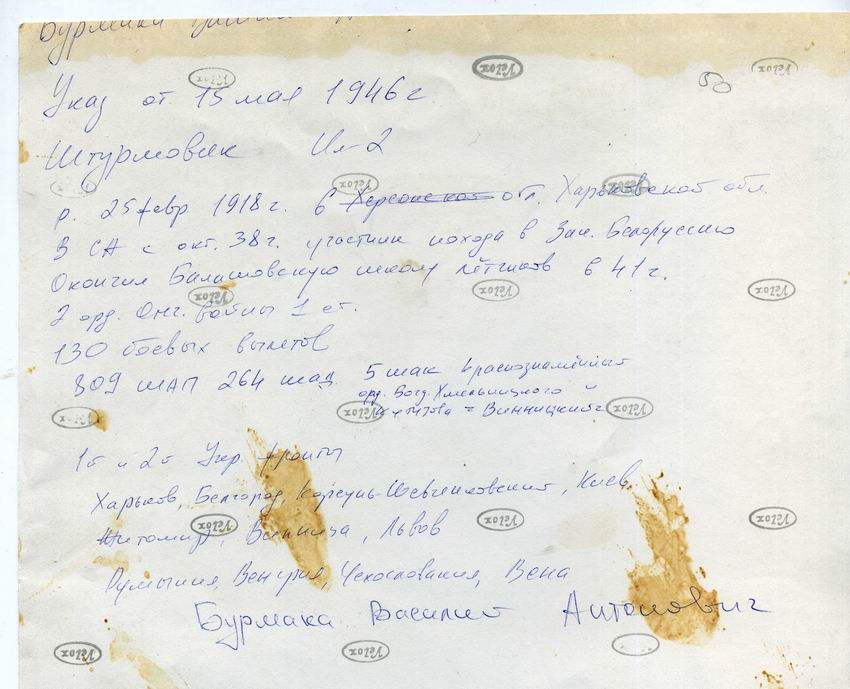 Бурмака Васили
50
Указ от 15 мая 1946 г.
Штурмовик Ил-2
р. 25 февр 1918 г. в Херсонской обл. Харьковской обл.
В СА с окт. 38 г. участник похода в Зап. Белоруссию
Окончил Балашовскую школу лётчиков в 41 г.
2 орд. Отч. войны 1 ст.
130 боевых вылетов
809 шап 264 шад 5 шак Краснознамённый
орд. Богд. Хмельницкого
Кутузова Винницкий
1й и 2й Укр. фронты
Харьков, Белгород, Корсунь-Шевченковский, Киев
Житомир, Винница, Львов
Румыния, Венгрия, Чехословакия, Вена
Бурмака Василий Антонович
Velox